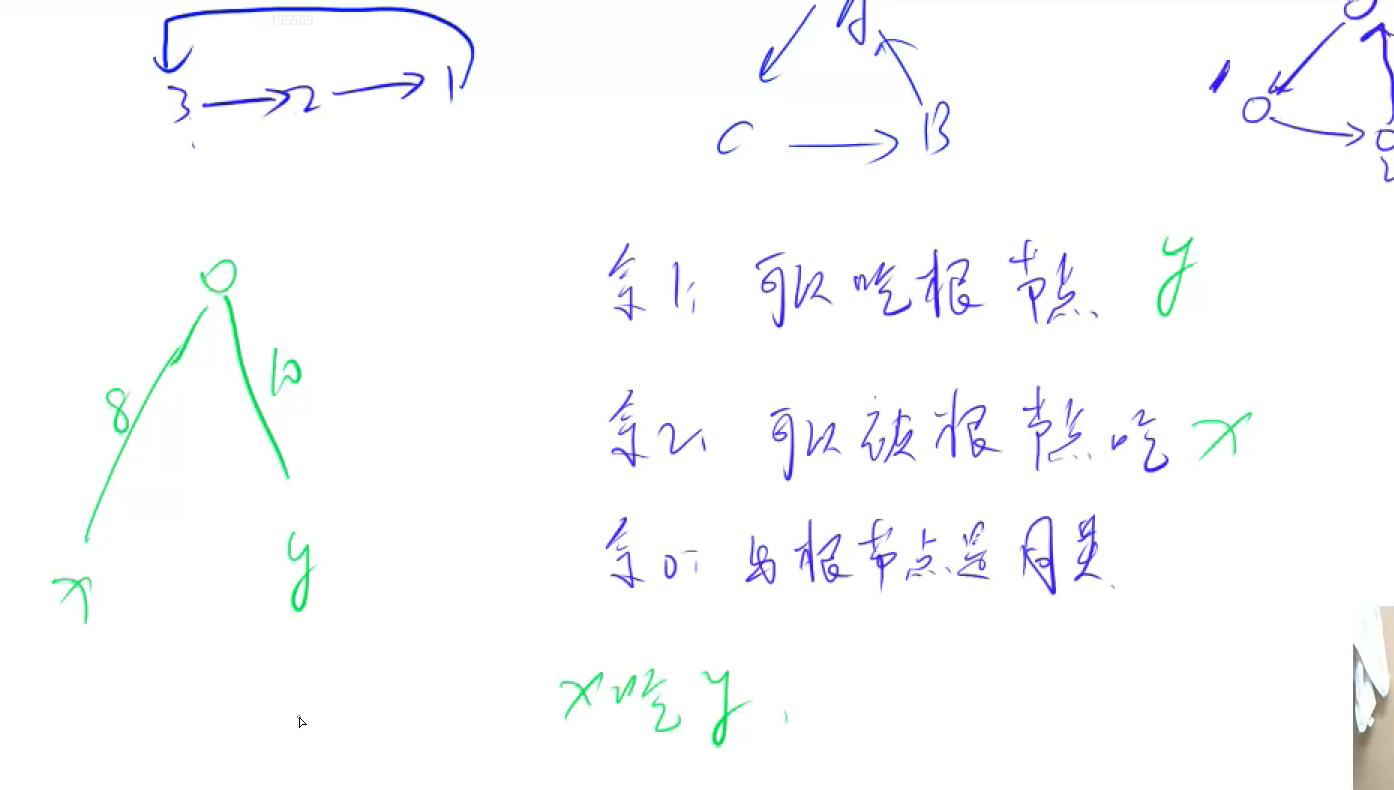 195509
A
3 → 2 → 1
C → B
2
余1: 可以吃根节点 y
余2: 可以被根节点吃 x
余0: 与根节点是同类
8
10
x
y
x吃y.